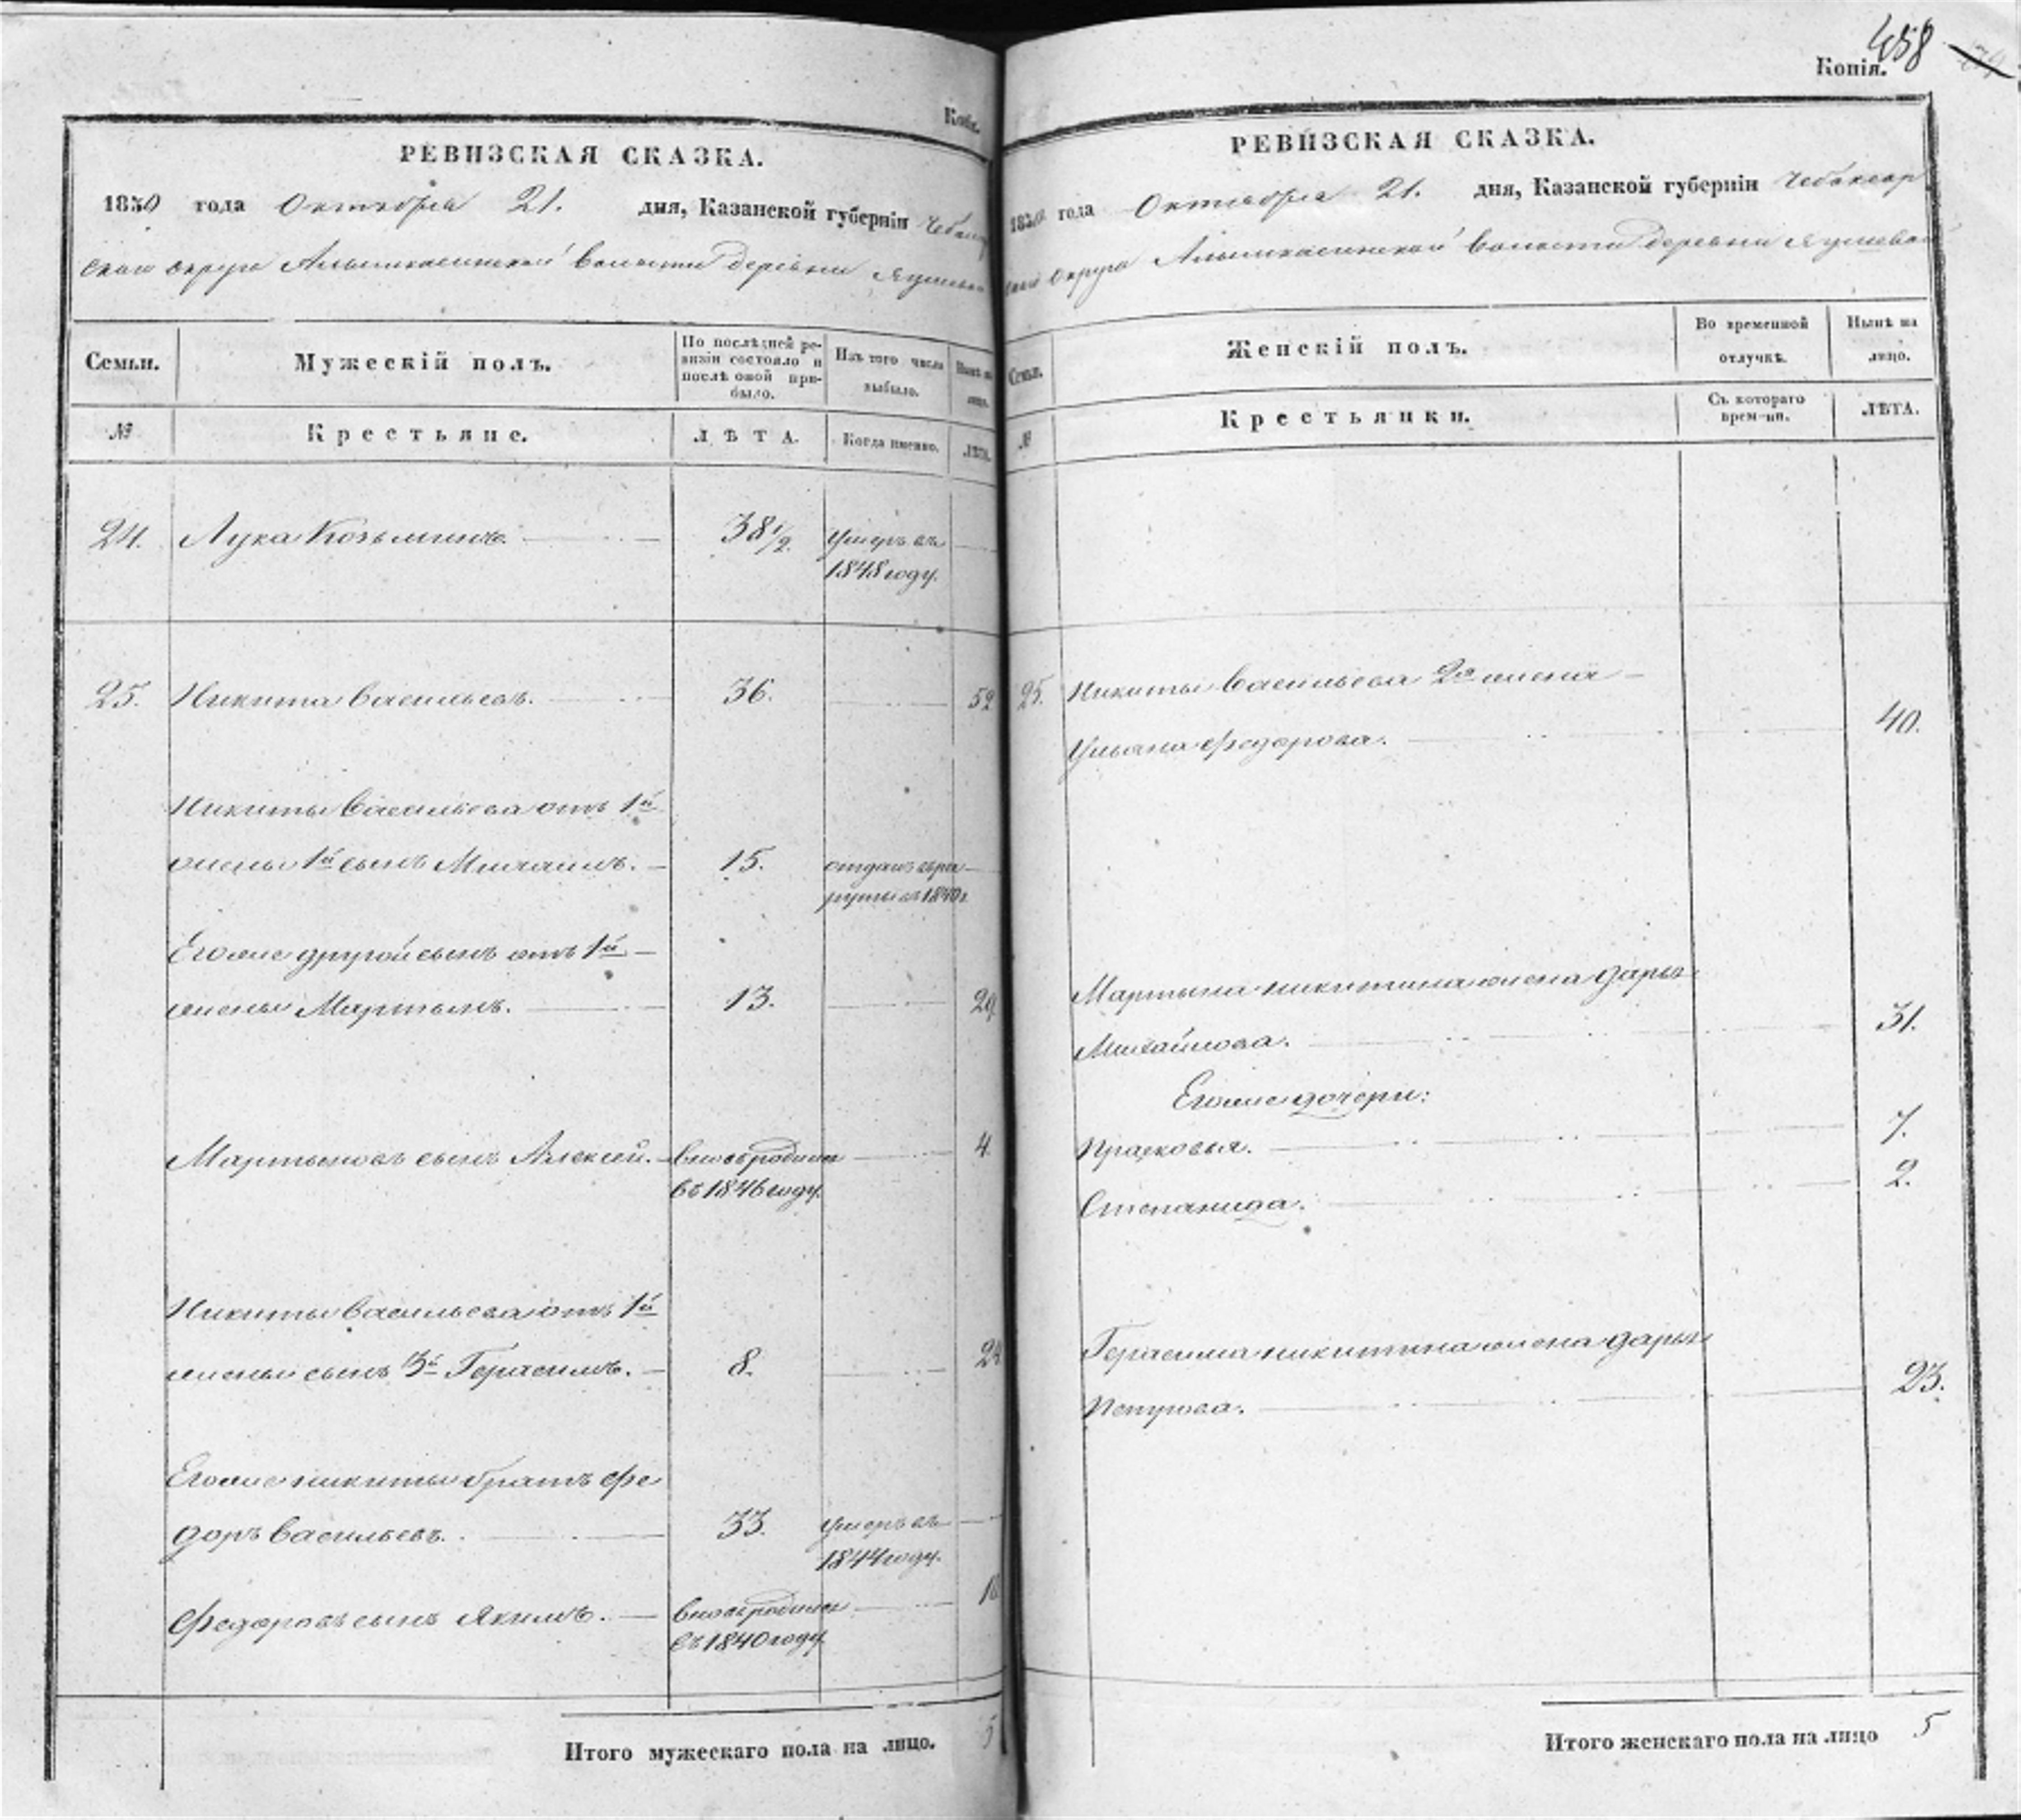 Копія.
РЕВИЗСКАЯ СКАЗКА.
1850 года Октября 21. дня, Казанской губерніи Чебоксар
скаго округа Алымкасинской волости деревни
Семьи.
Мужескій полъ.
По послѣдней ре-
визіи состояло и
послѣ оной при-
было.
Изъ того числа
выбыло.
Нынѣ на
лицо.
№
Крестьяне.
ЛѢТА.
Когда именно.
ЛѢТА.
24. Лука Козьминъ. 38 1/2. умеръ въ
1848 году.
25. Никита Васильевъ. 36. 52
Никиты Васильева отъ 1й
жены 1й сынъ Михаилъ. 15. отданъ въ рек
руты въ 1840 г
Егоже другой сынъ отъ 1й
жены Мартынъ. 13. 29
Мартыновъ сынъ Алексей. вновь родился 4
въ 1846 году.
Никиты Васильева отъ 1й
жены сынъ 3й Герасимъ. 8. 24
Егоже Никиты братъ Фе
доръ Васильевъ. 33. умеръ въ
1844 году.
Федоровъ сынъ Якимъ. вновь родился
въ 1840 году
Итого мужескаго пола на лицо. 5
458
Копія.
РЕВИЗСКАЯ СКАЗКА.
1850 года Октября 21. дня, Казанской губерніи Чебоксар
скаго округа Алымкасинской волости деревни
Семьи.
Женскій полъ.
Во временной
отлучкѣ.
Нынѣ на
лицо.
№
Крестьянки.
Съ котораго
времени.
ЛѢТА.
25. Никиты Васильева 2я жена
Ульяна Федорова. 40.
Мартына Никитина жена Дарья
Михайлова. 31.
Егоже дочери:
Прасковья. 7.
Степанида. 2.
Герасима Никитина жена Дарья
Петрова. 23.
Итого женскаго пола на лицо 5